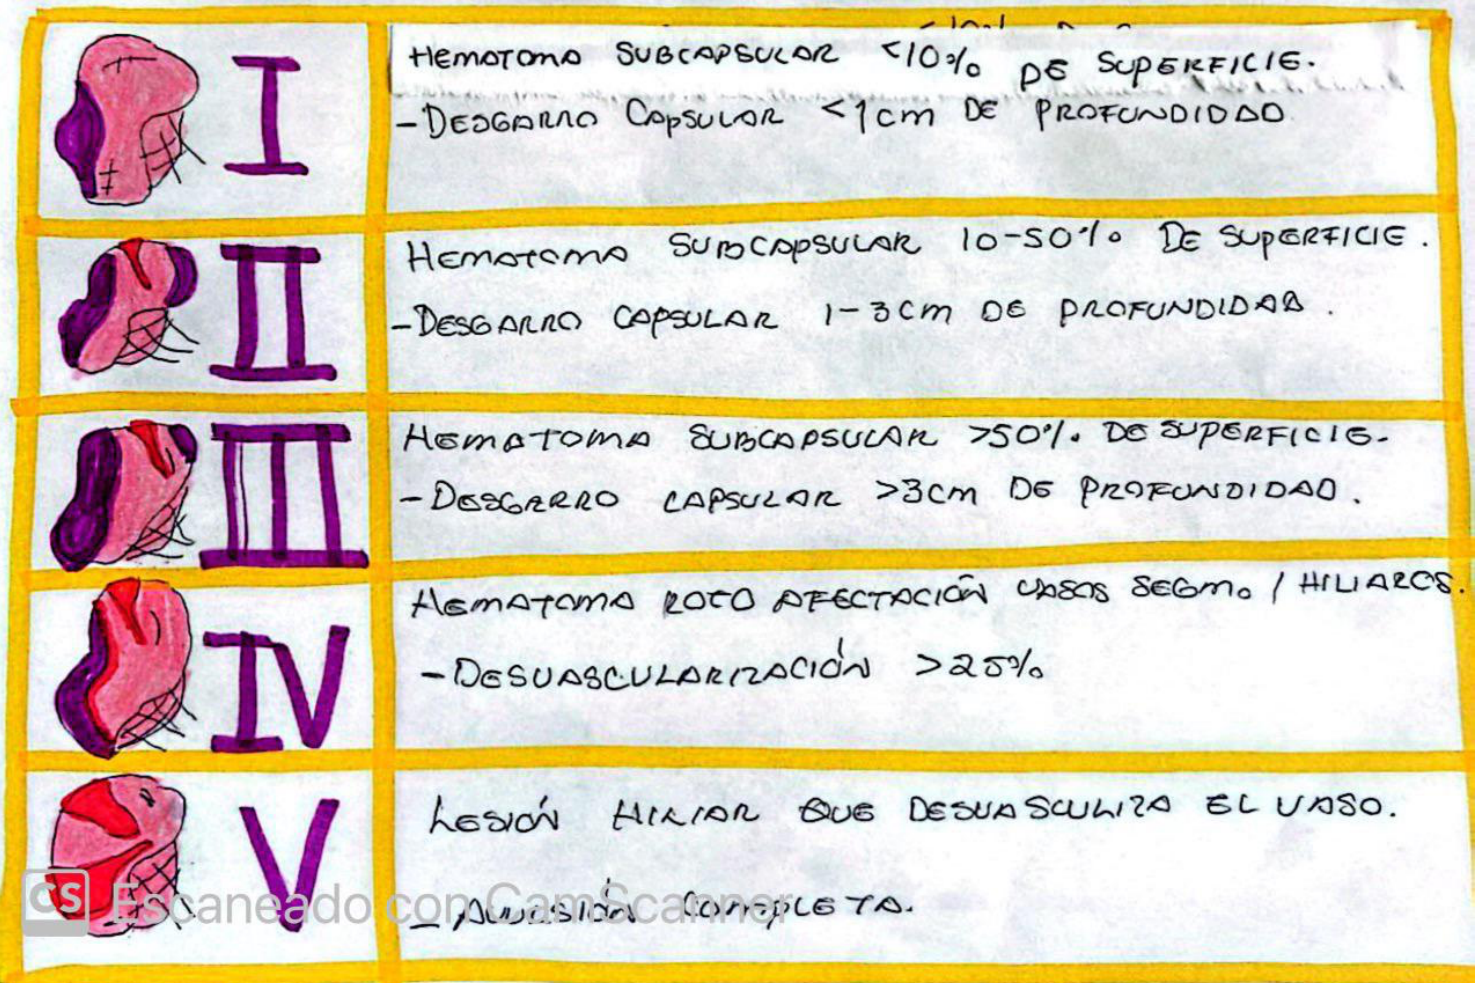 I
HEMATOMA SUBCAPSULAR <10% DE SUPERFICIE.
-DESGARRO CAPSULAR <1cm DE PROFUNDIDAD
II
HEMATOMA SUBCAPSULAR 10-50% DE SUPERFICIE.
-DESGARRO CAPSULAR 1-3cm DE PROFUNDIDAD.
III
HEMATOMA SUBCAPSULAR >50% DE SUPERFICIE.
-DESGARRO CAPSULAR >3cm DE PROFUNDIDAD.
IV
HEMATOMA ROTO AFECTACIÓN VASOS SEGM. / HILIARES.
-DESVASCULARIZACIÓN >25%
V
LESIÓN HILIAR QUE DESVASCULIZA EL VASO.
- COMPLETA.
CS Escaneado con CamScanner